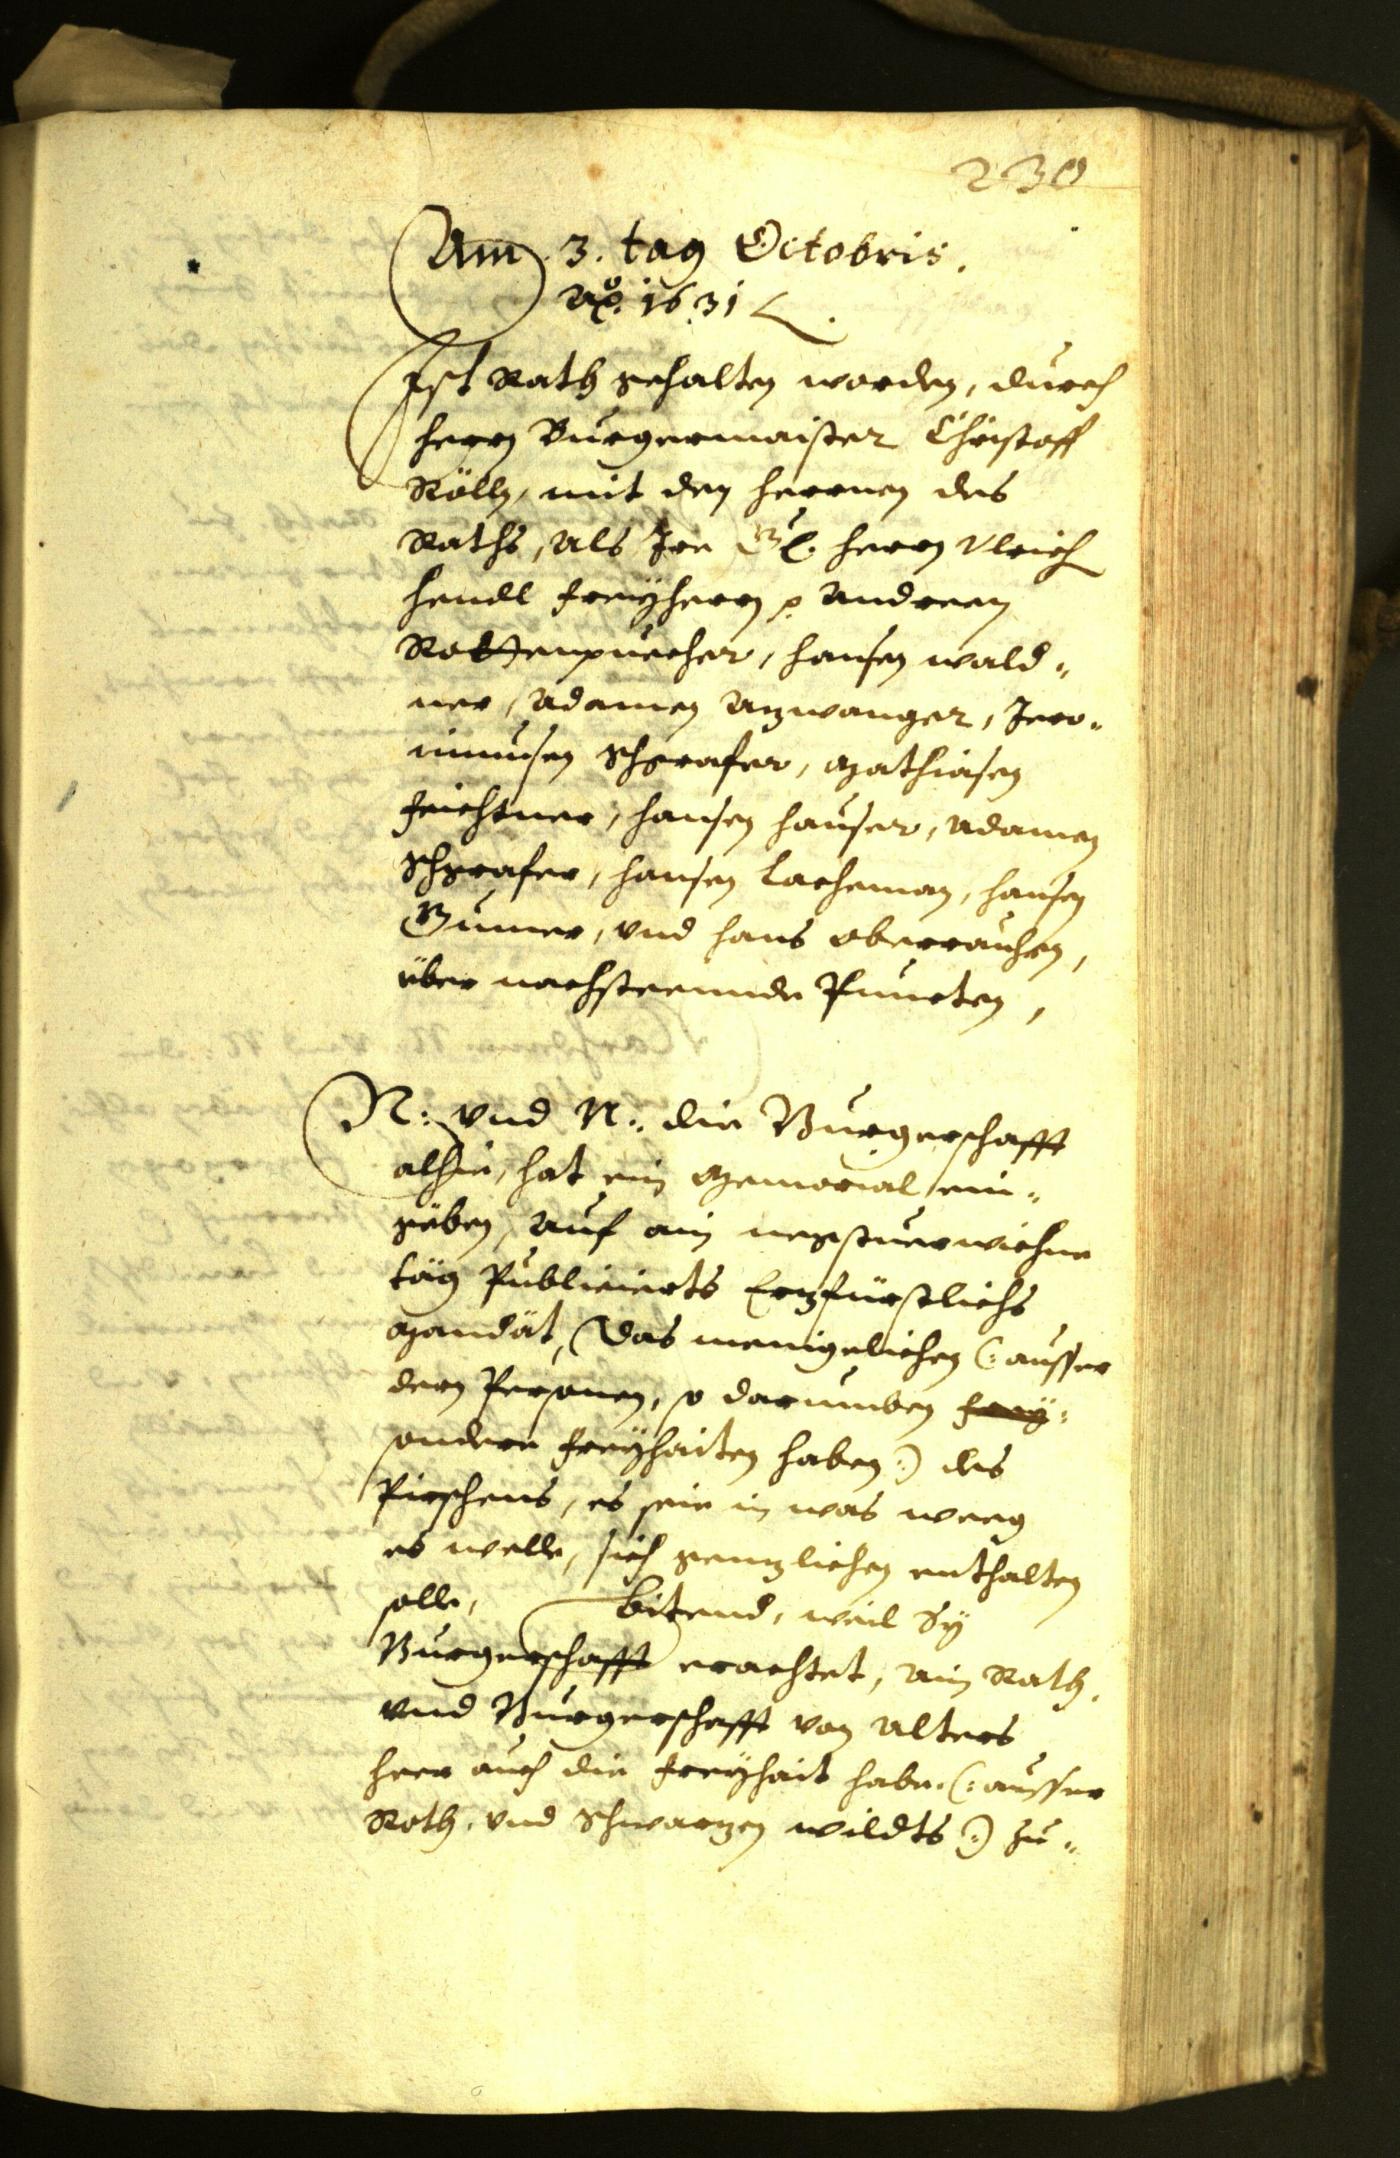 230
Am 3. tag Octobris.
Ao. 1631
Ist Rath gehalten worden, durch
herrn Burgermaister Christoff
Rölln, mit den herrnen des
Raths, als Ire Gl. herrn Vlrich
hendl freyherrn p Andreen
Rottenpuecher, hansen wald„
ner, Adamen Azwanger, Jero„
nimusen Schgrafer, Mathiasen
Feichtner, hansen hauser, Adamen
Schgrafer, hansen Lacheman, hansen
Gumer, vnd hans oberrauhen,
über nachsteende Puncten,
N: vnd N: die Burgerschafft
alhie, hat ein Memorial ein„
geben, auf ain negstuerwichne
täg Publicierts Erzfürstlichs
Mandät, das menigelichen (: ausser
dern Personen, so darumben frey:
sondere freyhaiten haben :) des
Pirschens, es seie in was weeg
es welle, sich genzlichen enthalten
solle, bitend, weil Sy
Burgerschafft erachtet, ain Rath,
vnd Burgerschafft von alters
heer auch die freyhait habe (: ausser
Roth, vnd Schwarzen wildts :) zu„